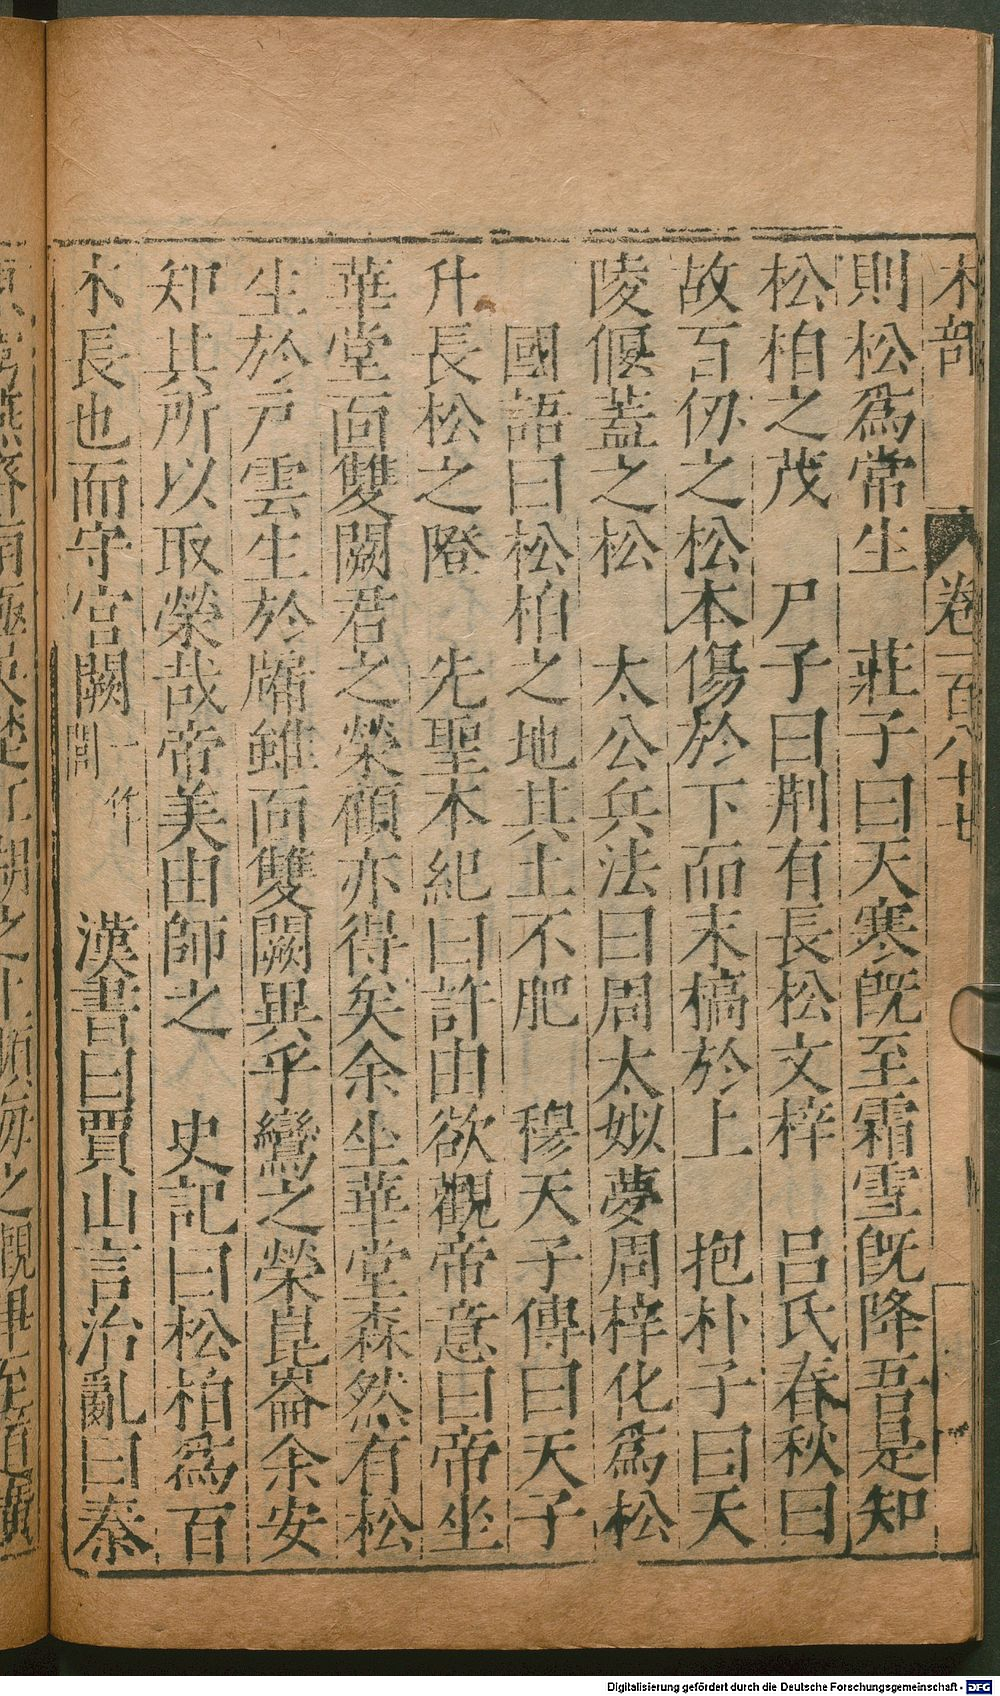 木部 卷一百八十七
則松爲常生 莊子曰天寒旣至霜雪旣降吾是知
松柏之茂 尸子曰荆有長松文梓 呂氏春秋曰
故百仞之松本傷於下而末槁於上 抱朴子曰天
陵偃蓋之松 太公兵法曰周太姒夢周梓化爲松
國語曰松柏之地其土不肥 穆天子傳曰天子
升長松之隥 先聖本紀曰許由欲觀帝意曰帝坐
華堂面雙闕君之榮願亦得矣余坐華堂森然有松
生於戶雲生於牖雖面雙闕異乎鸞之榮崑崙余安
知其所以取榮哉帝美由師之 史記曰松柏爲百
木長也而守宮闕一作閭 漢書曰賈山言治亂曰秦
Digitalisierung gefördert durch die Deutsche Forschungsgemeinschaft - DFG